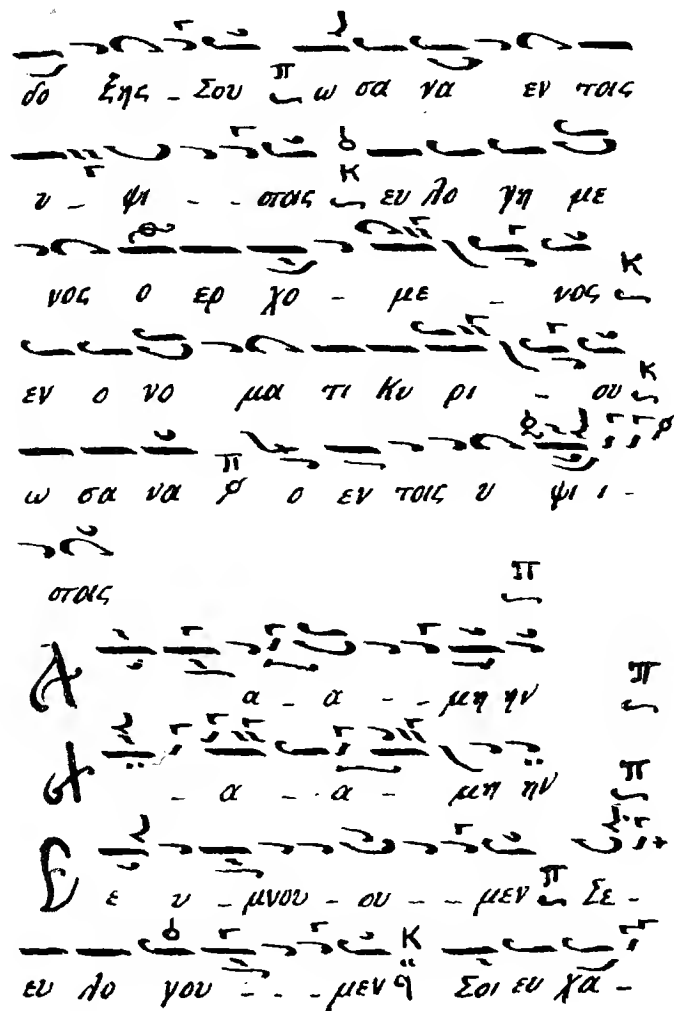 δο ξης - Σου π ω σα να εν τοις
υ - ψι - - στοις κ ευ λο γη με
νος ο ερ χο - με - νος κ
εν ο νο μα τι Κυ ρι - ου κ
ω σα να π ο εν τοις υ ψι ι -
στοις π
Α α - α - - μη ην π
Α - α - α - μη ην π
Ε ε υ - μνου - ου - - μεν π Σε -
ευ λο γου - - - μεν κ Σοι ευ χα -